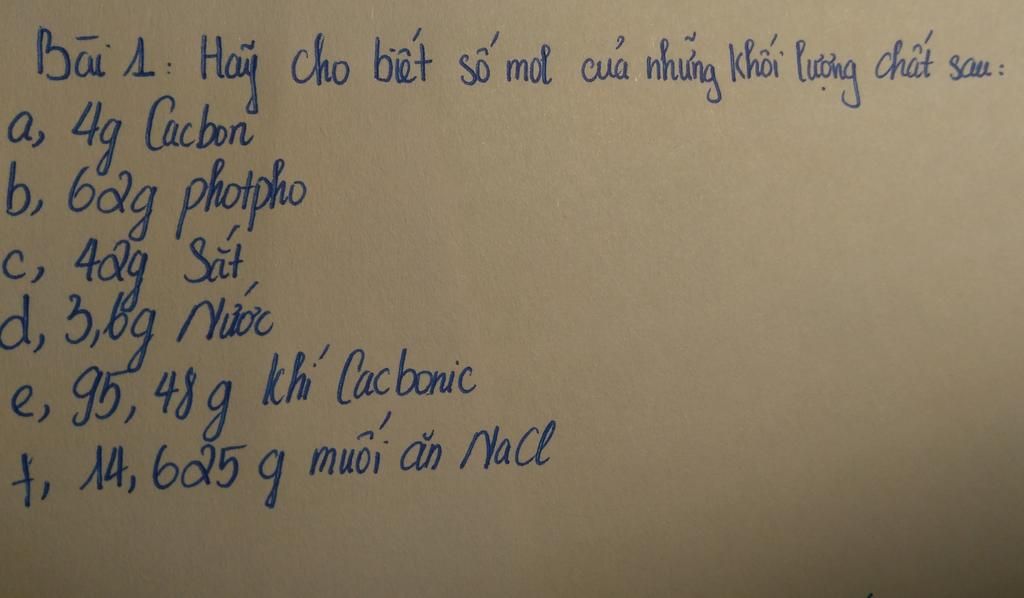 Bài 1: Hãy cho biết số mol của những khối lượng chất sau:
a, 4g Cacbon
b, 62g photpho
c, 42g Sắt
d, 3,6g Nước
e, 95,48g khí Cacbonic
f, 14,625g muối ăn NaCl